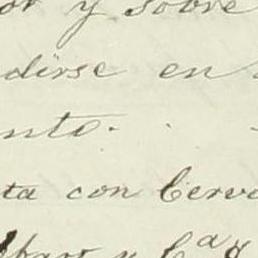 or y sobre
dirse en
nto.
ta con Cerv
y C.a y